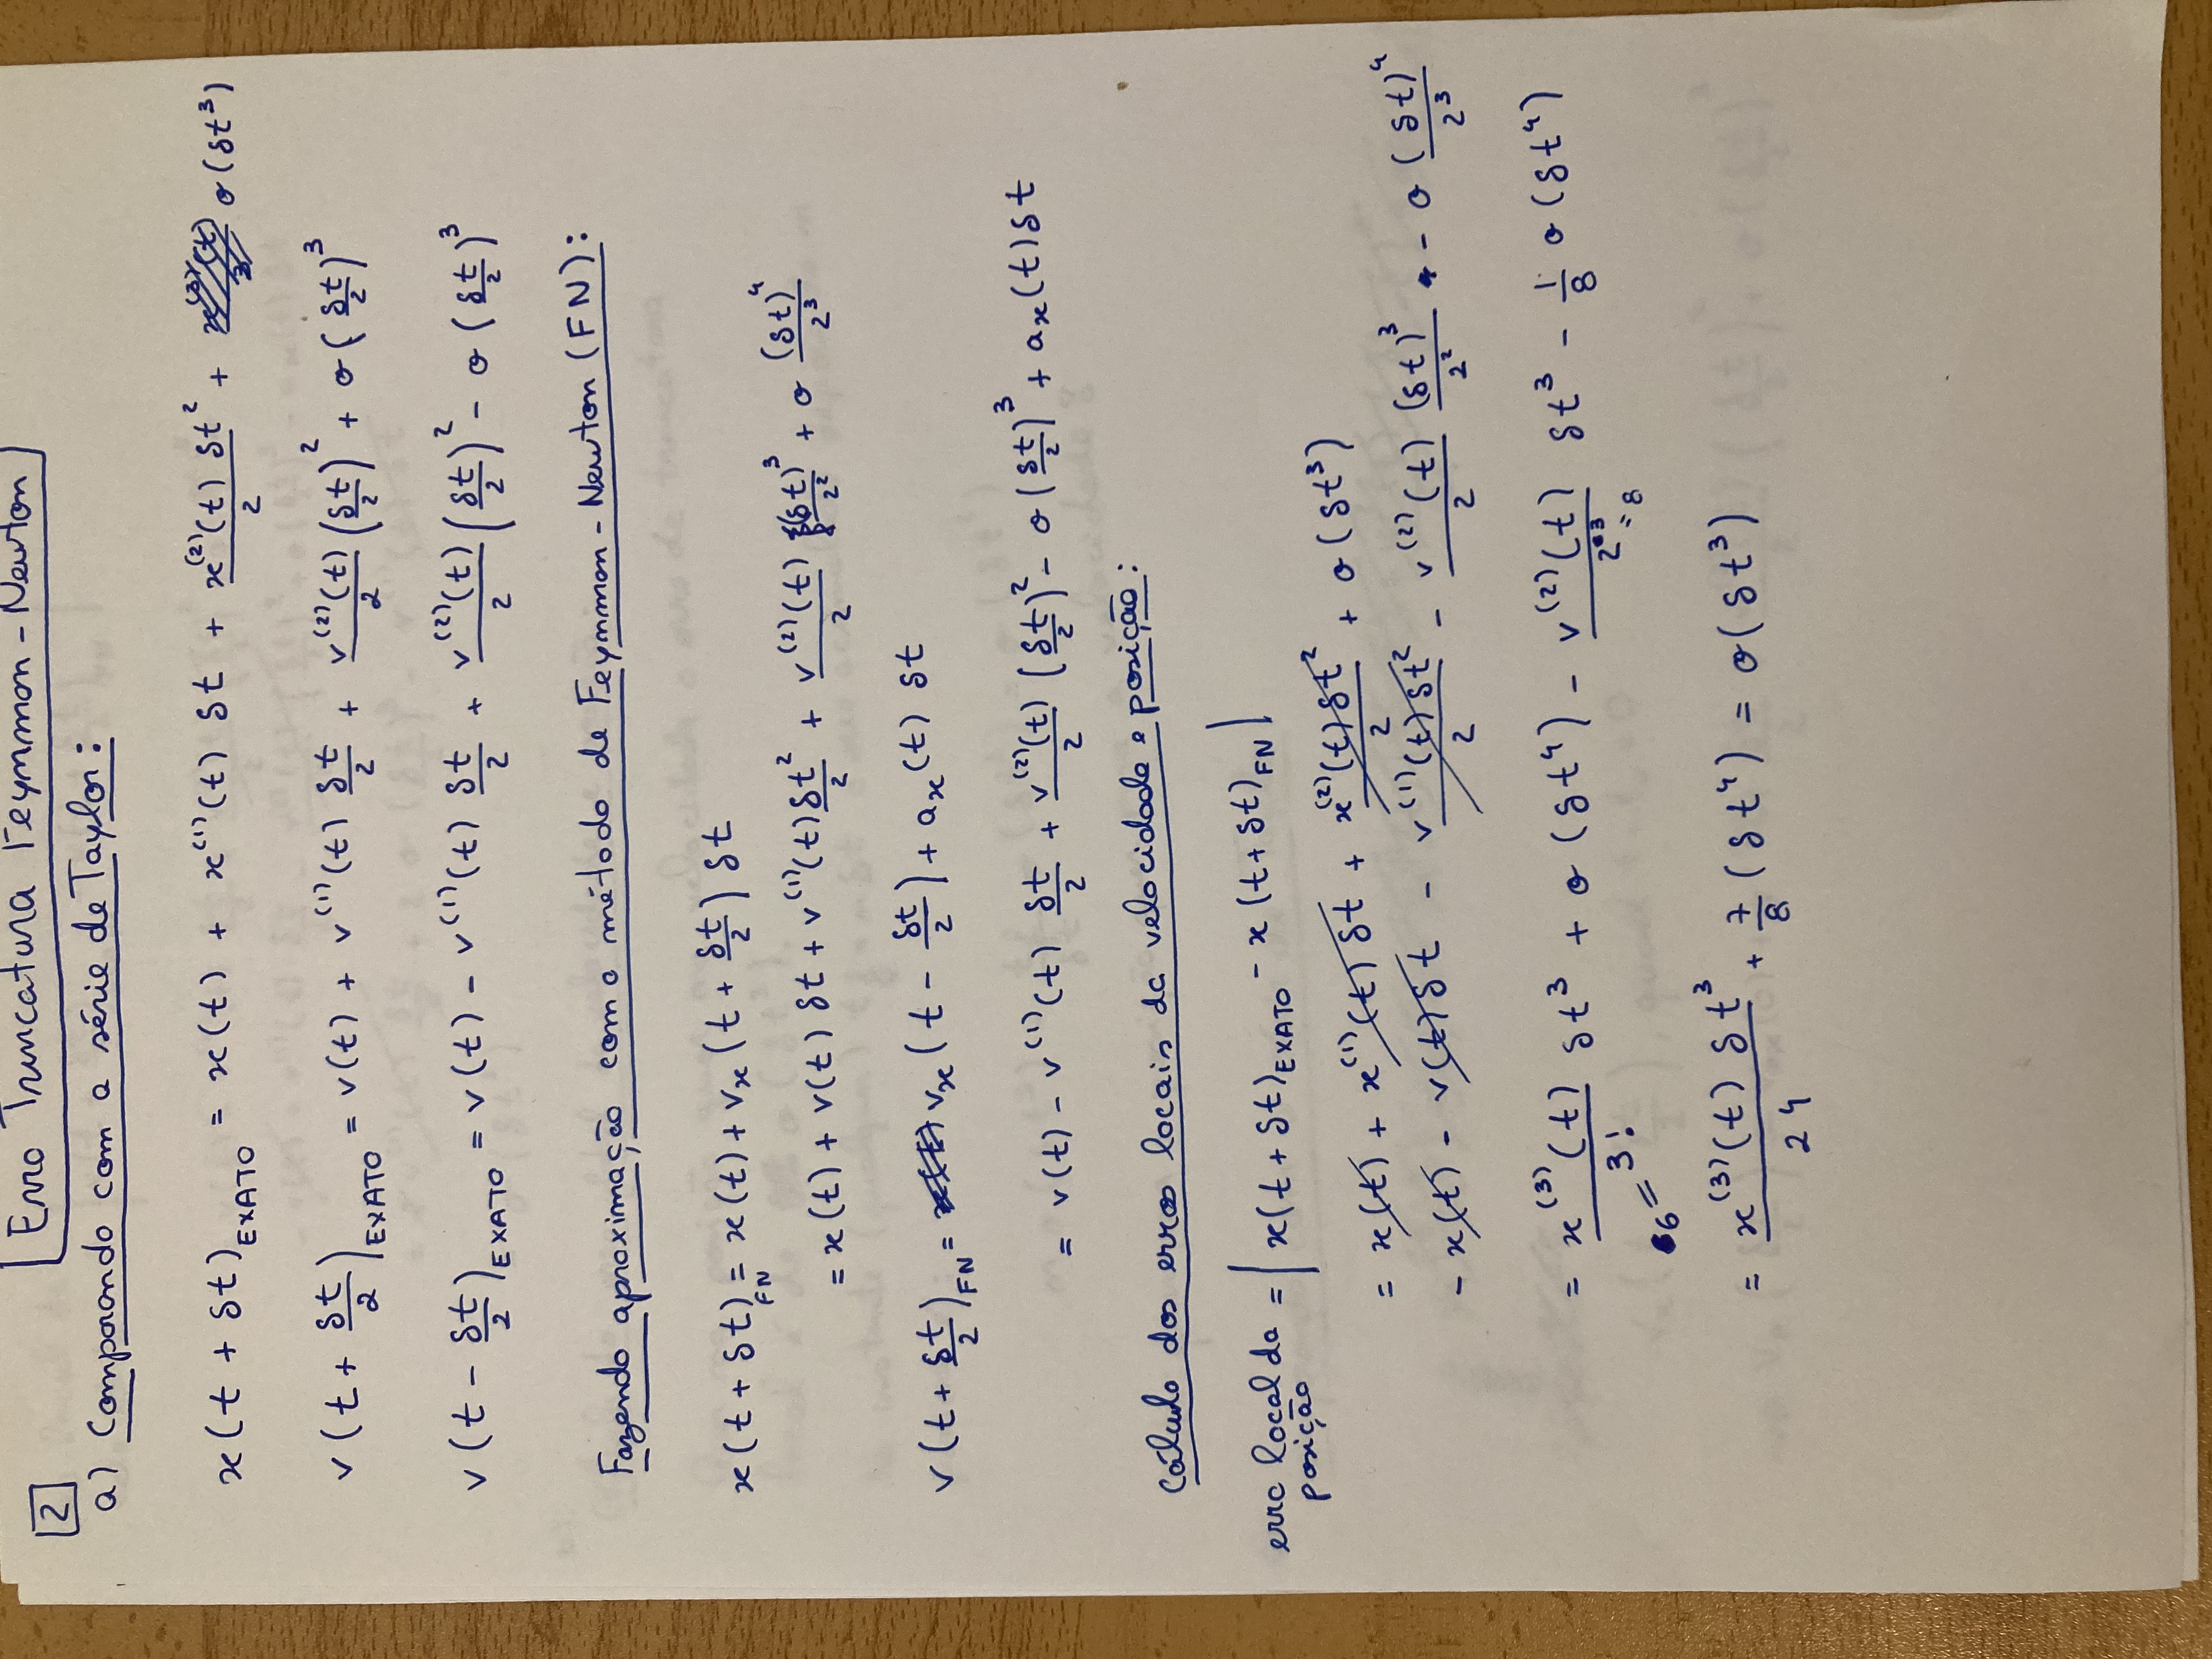 Erro Truncatura Feynmman - Newton
2
a) Comparando com a série de Taylor:
x(t + δt)_EXATO = x(t) + x⁽¹⁾(t) δt + x⁽²⁾(t) δt²/2 + o(δt³)
v(t + δt/2)_EXATO = v(t) + v⁽¹⁾(t) δt/2 + v⁽²⁾(t)/2 (δt/2)² + o(δt/2)³
v(t - δt/2)_EXATO = v(t) - v⁽¹⁾(t) δt/2 + v⁽²⁾(t)/2 (δt/2)² - o(δt/2)³
Fazendo aproximação com o método de Feynmman - Newton (FN):
x(t + δt)_FN = x(t) + vₓ(t + δt/2) δt
= x(t) + v(t) δt + v⁽¹⁾(t) δt²/2 + v⁽²⁾(t)/2 (δt)³/2² + o (δt)⁴/2³
v(t + δt/2)_FN = vₓ(t - δt/2) + aₓ(t) δt
= v(t) - v⁽¹⁾(t) δt/2 + v⁽²⁾(t)/2 (δt/2)² - o(δt/2)³ + aₓ(t) δt
Cálculo dos erros locais da velocidade e posição:
erro local da posição = | x(t + δt)_EXATO - x(t + δt)_FN |
= x(t) + x⁽¹⁾(t) δt + x⁽²⁾(t) δt²/2 + o(δt³)
- x(t) - v(t) δt - v⁽¹⁾(t) δt²/2 - v⁽²⁾(t)/2 (δt)³/2² - o (δt)⁴/2³
= x⁽³⁾(t)/3! δt³ + o(δt⁴) - v⁽²⁾(t)/2³ δt³ - 1/8 o(δt⁴)
6 = = 8
= x⁽³⁾(t) δt³/24 + 7/8 (δt⁴) = o(δt³)